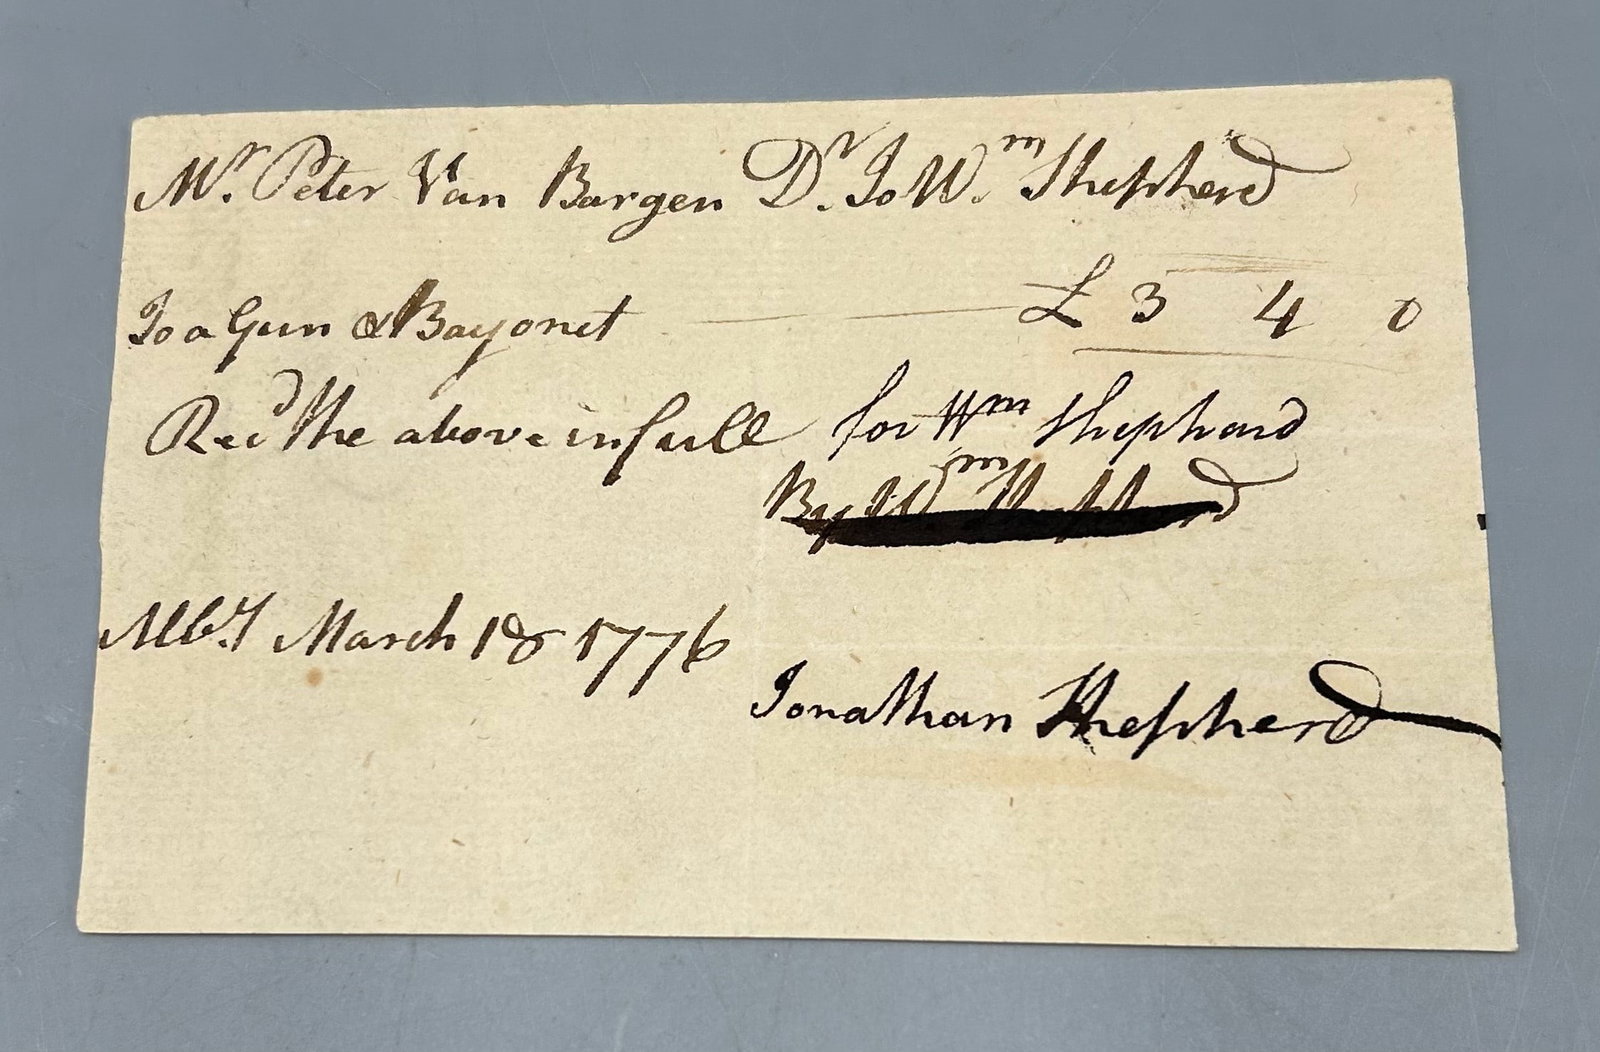 Mr. Peter Van Bargen Dr. To Wm. Shepherd
To a Gun & Bayonet £ 3 4 0
Recd the above in full for Wm Shephard
By Wm. Shepherd
Alby March 18 1776
Jonathan Shepherd